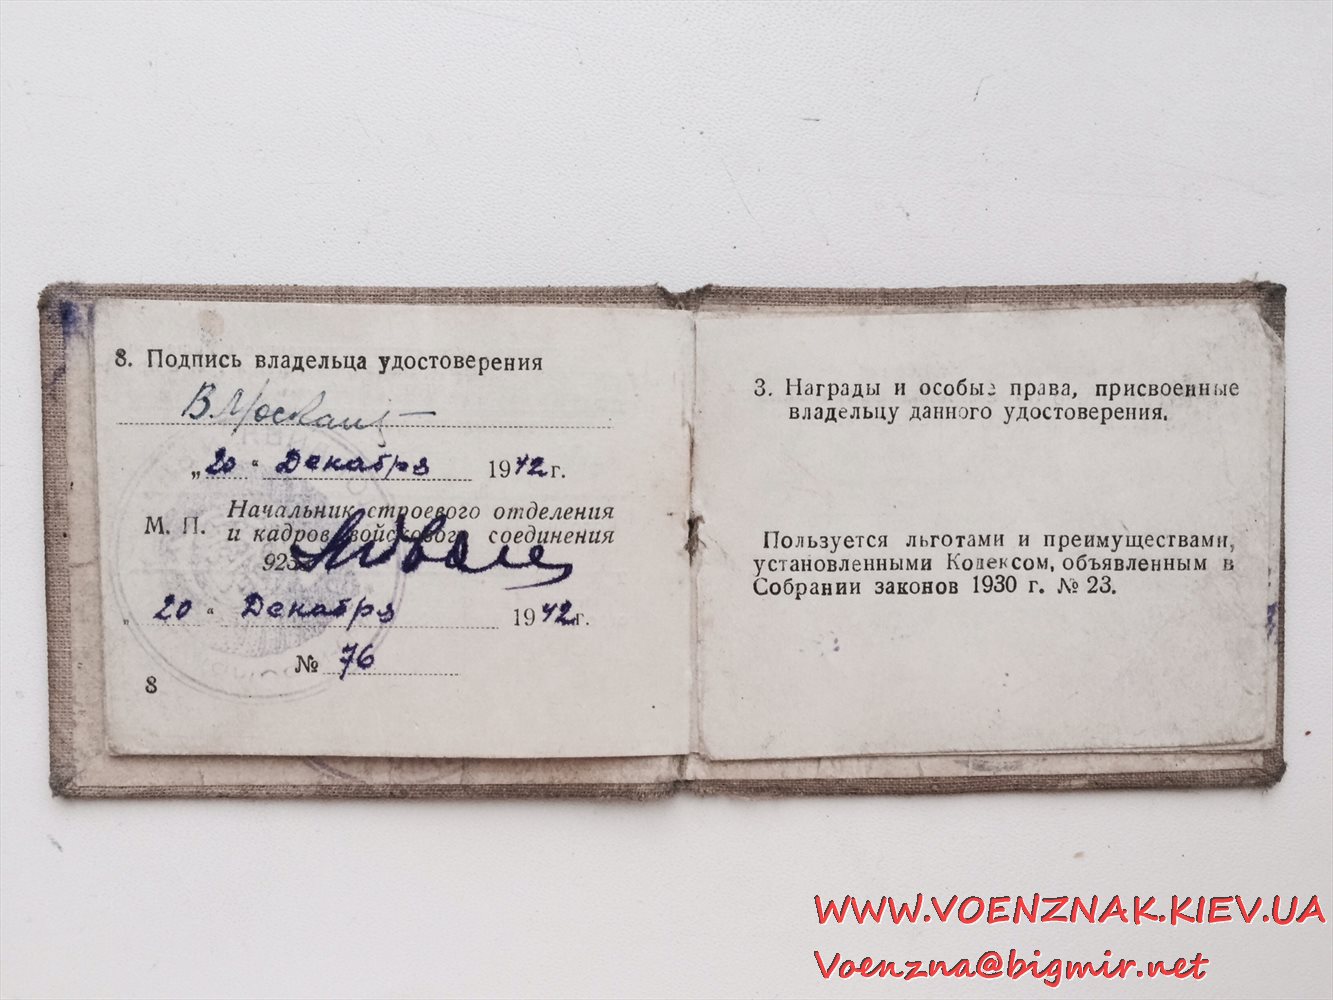 8. Подпись владельца удостоверения
„20“ Декабря 1942 г.
М. П. Начальник строевого отделения
и кадров войскового соединения
„20“ Декабря 1942 г.
№ 76
8
3. Награды и особые права, присвоенные
владельцу данного удостоверения.
Пользуется льготами и преимуществами,
установленными Кодексом, объявленным в
Собрании законов 1930 г. № 23.
WWW.VOENZNAK.KIEV.UA
Voenzna@bigmir.net